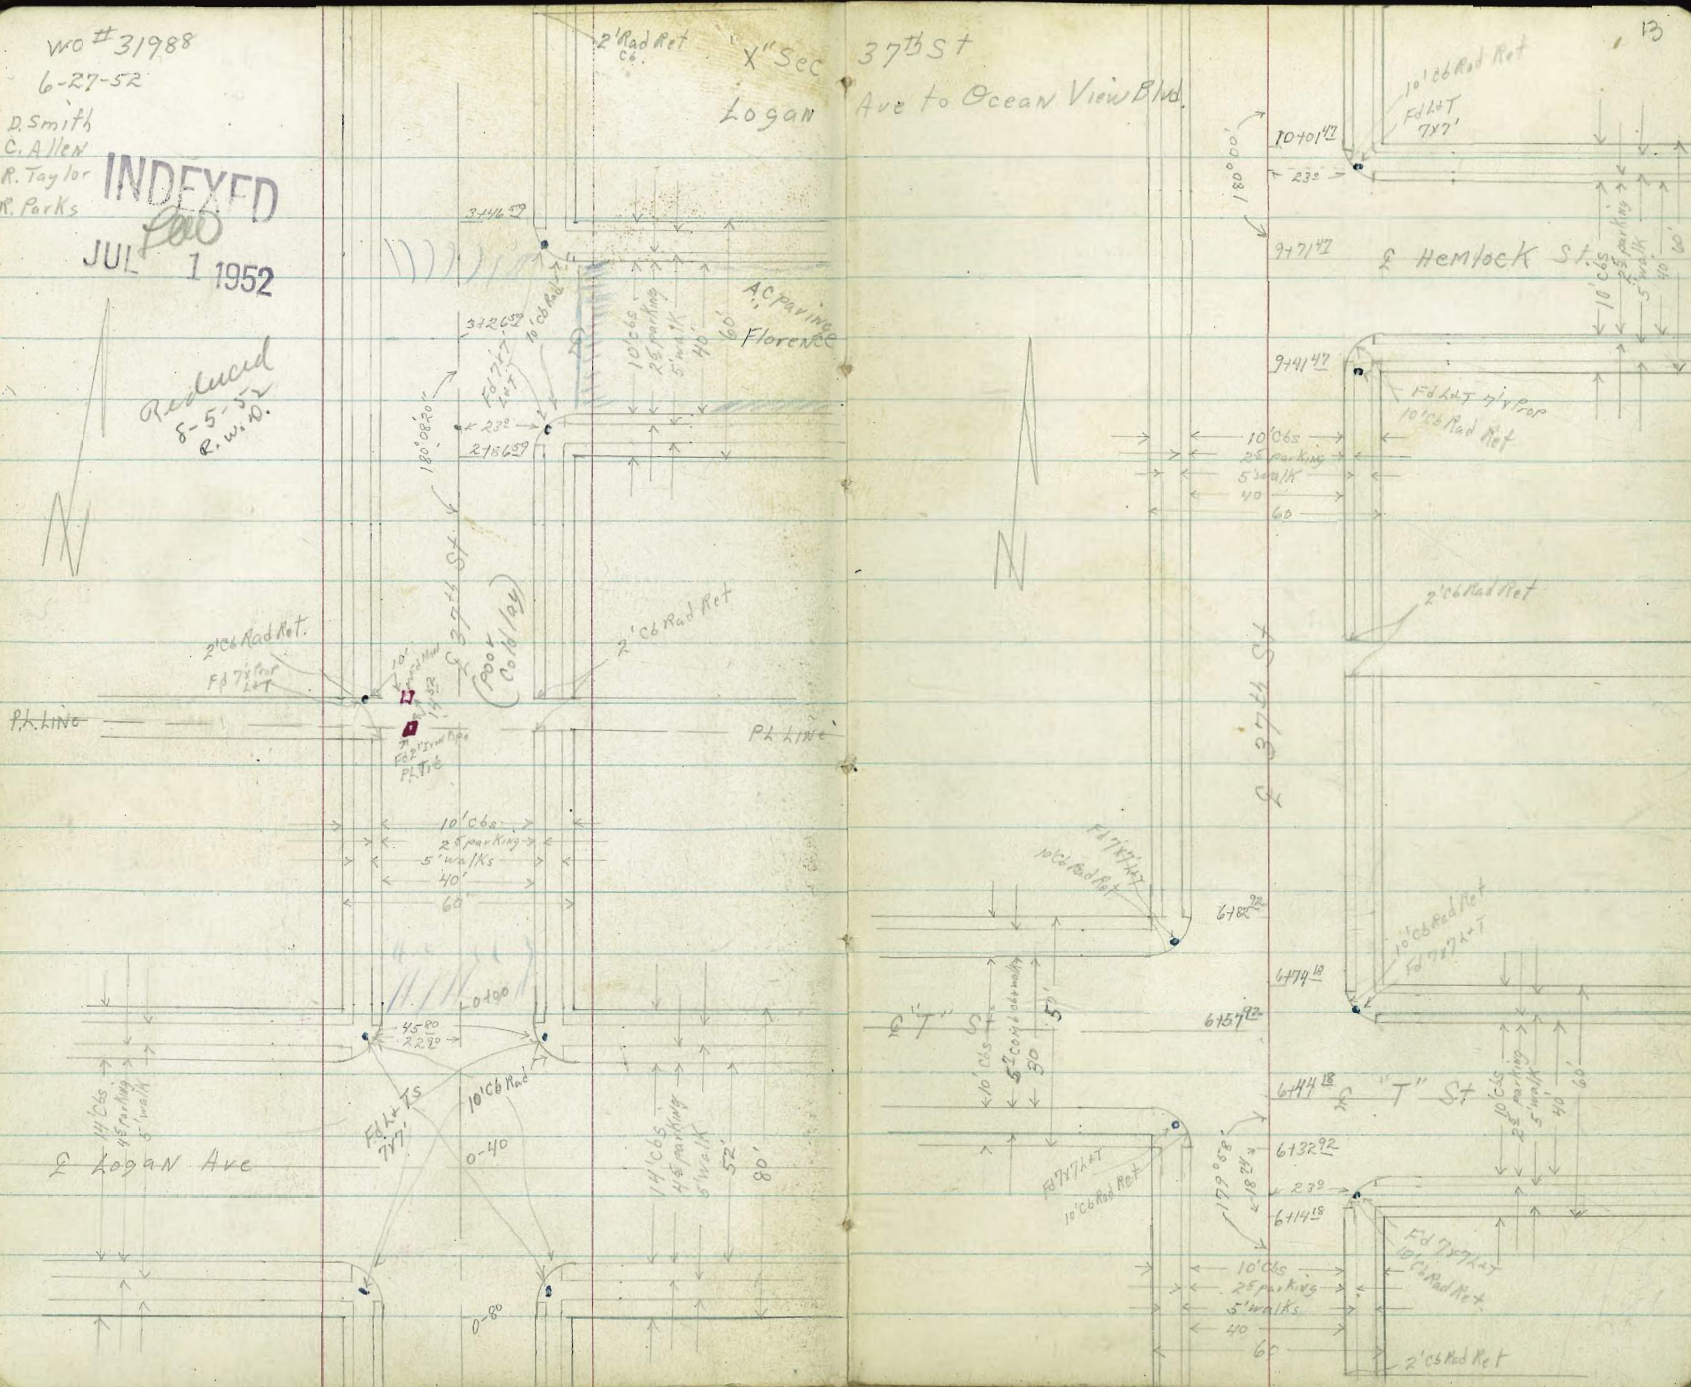 WO #31988
6-27-52
D. Smith
C. Allen
R. Taylor
R. Parks
INDEXED
JUL 1 1952
Reduced
8-5-52
R.W.D.
2' Rad Ret
Cb.
"X" Sec 37th St
Logan Ave to Ocean View Blvd.
13
3+46 59
3+26 59
10' Cb Rad
Fd 7x7'
L&T
23 0
2+86 59
180° 08' 20"
10' Cbs
2 5 parking
5' walk
40'
60'
A.C. paving
Florence
℄ 37th St
(poor
Cold lay)
2' Cb Rad Ret.
Fd 7'x Prop
L&T
10'
14 52
Fd 2" Iron Pipe
P.L. Tie
2' Cb Rad Ret
P.L. Line
P.L. Line
10' Cbs
2 5 parking
5' walks
40'
60'
0+00
45 80
22 90
Fd L&T
7x7'
10' Cb Rad
0-40
0-80
14' Cbs
4 5 parking
5' walk
℄ Logan Ave
14' Cbs
4 5 parking
5' walk
52'
80'
10' Cb Rad Ret
Fd L&T
7x7'
10+01 47
23 0
180° 00'
9+71 47
℄ Hemlock St.
10' Cbs
2 5 parking
5' walk
40'
60'
9+41 47
Fd L&T 7'x Prop
10' Cb Rad Ret
10' Cbs
2 5 parking
5' walk
40
60
2' Cb Rad Ret
℄ 37th St
Fd 7x7' L&T
10' Cb Rad Ret
6+82 92
10' Cb Rad Ret
Fd 7x7 L&T
6+74 18
6+57 92
℄ "T" St
10' Cbs
30
50'
6+44 18
℄ "T" St
10' Cbs
2 5 parking
5' walk
40'
60'
6+32 92
179° 58'
18 24
23 0
6+14 18
Fd 7x7 L&T
10' Cb Rad Ret
Fd 7x7 L&T
10' Cb Rad Ret
10' Cbs
2 5 parking
5' walks
40
60
2' Cb Rad Ret